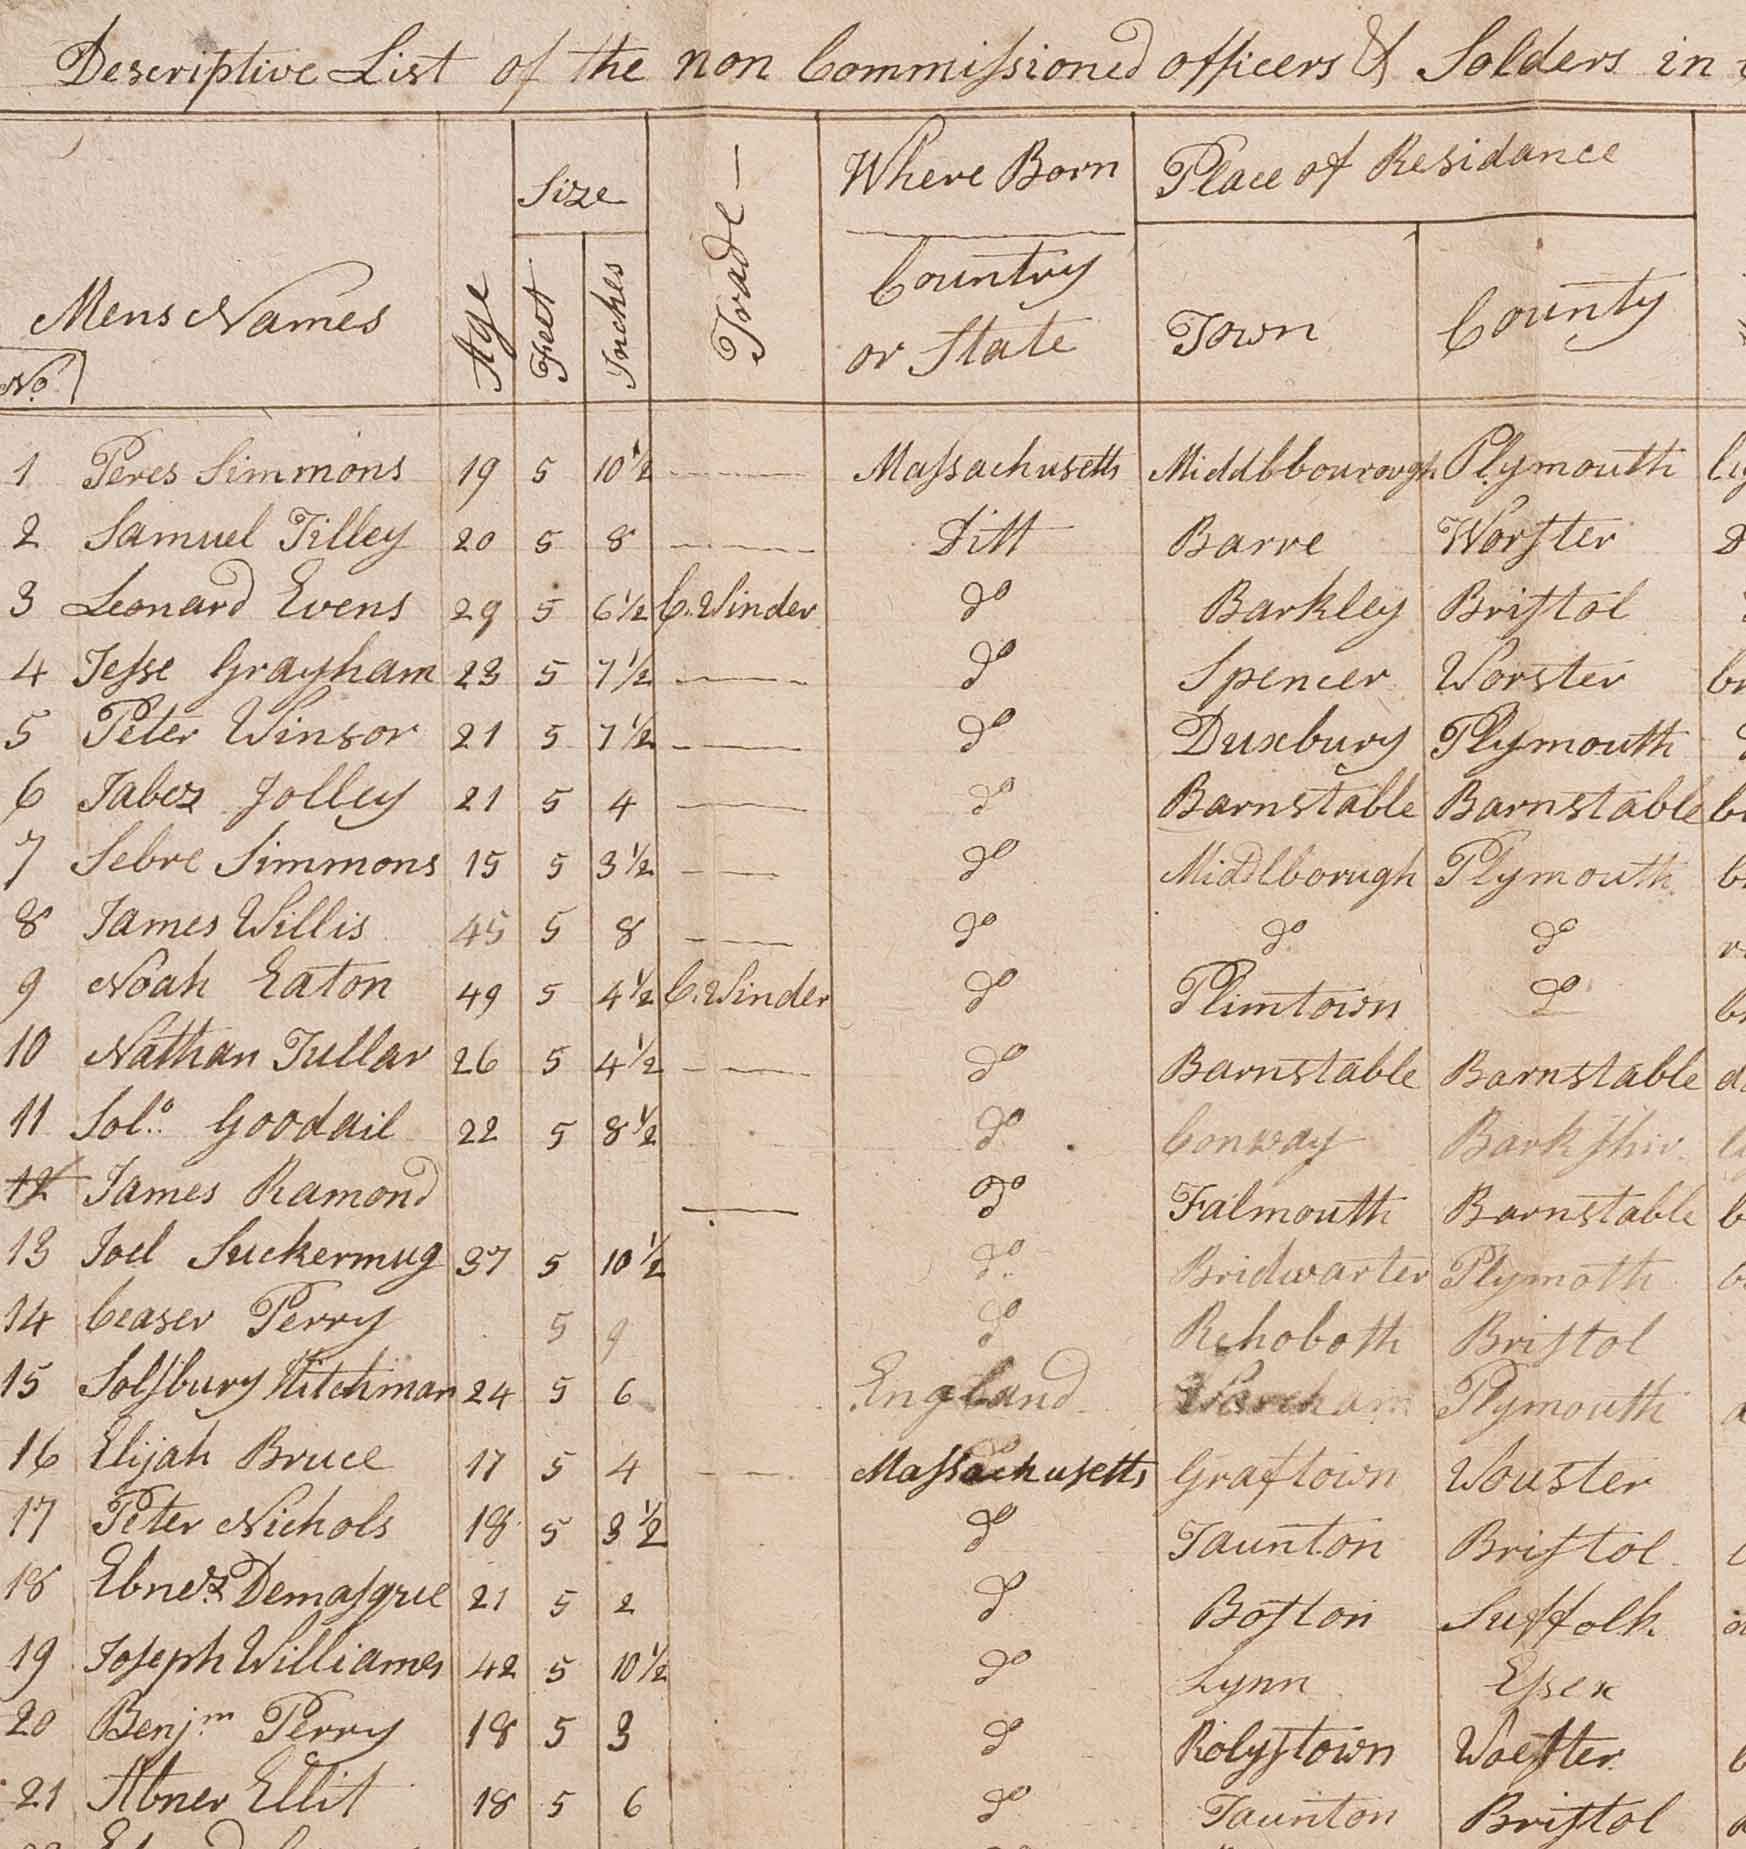 Descriptive List of the non Commissioned officers & Solders in
Mens Names
No.
Age
Size
Feet
Inches
Trade
Where Born
Country
or State
Place of Residance
Town
County
1 Peres Simmons 19 5 10 1/2 Massachusetts Middlbbourough Plymouth
2 Samuel Tilley 20 5 8 Ditt Barre Worster
3 Leonard Evens 29 5 6 1/2 C. Winder do Barkley Bristol
4 Jesse Grayham 23 5 7 1/2 do Spencer Worster
5 Peter Winsor 21 5 7 1/2 do Duxbury Plymouth
6 Jabez Jolley 21 5 4 do Barnstable Barnstable
7 Sebre Simmons 15 5 3 1/2 do Middlborugh Plymouth
8 James Willis 45 5 8 do do do
9 Noah Eaton 49 5 4 1/2 C. Winder do Plimtown do
10 Nathan Tullar 26 5 4 1/2 do Barnstable Barnstable
11 Solo. Goodail 22 5 8 1/2 do Conway Barkshir
12 James Ramond do Falmouth Barnstable
13 Joel Suckermug 37 5 10 1/2 do Bridwarter Plymoth
14 Ceaser Perry 5 9 do Rehoboth Bristol
15 Solsbury Hitchman 24 5 6 England Wareham Plymouth
16 Elijah Bruce 17 5 4 Massachusetts Graftown Wouster
17 Peter Nichols 18 5 3 1/2 do Taunton Bristol
18 Ebnez. Demasque 21 5 2 do Boston Suffolk
19 Joseph Williames 42 5 10 1/2 do Lynn Essex
20 Benjm. Perry 18 5 3 do Rolystown Woester
21 Abner Ellit 18 5 6 do Taunton Bristol